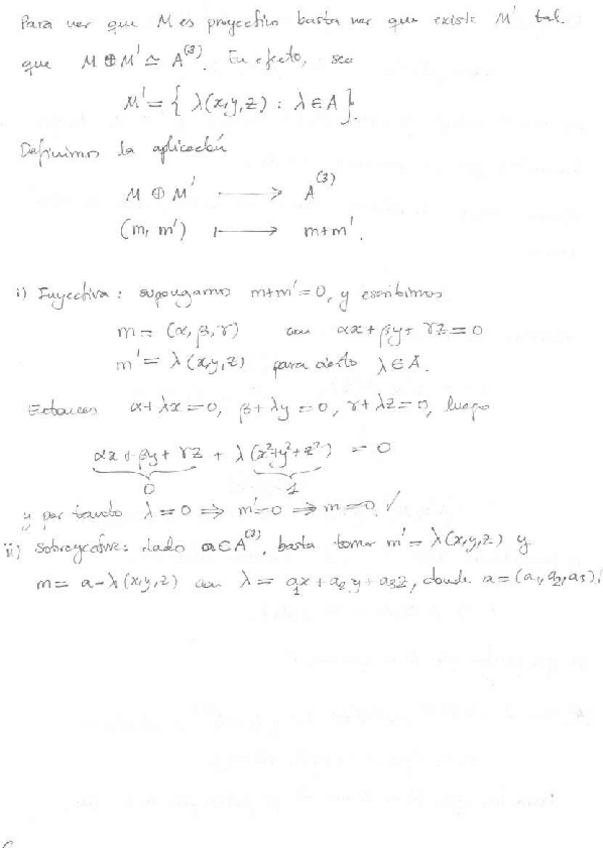 Para ver que M es proyectivo basta ver que existe M' tal
que M ⊕ M' ≃ A^(3). En efecto, sea
M' = { λ(x,y,z) : λ ∈ A }.
Definimos la aplicación
M ⊕ M' ⟶ A^(3)
(m, m') ⟼ m+m'.
i) Inyectiva: supongamos m+m'=0, y escribimos
m = (α, β, γ) con αx+βy+γz=0
m' = λ(x,y,z) para cierto λ∈A.
Entonces α+λx=0, β+λy=0, γ+λz=0, luego
αx+βy+γz + λ(x²+y²+z²) = 0
0 1
y por tanto λ=0 ⟹ m'=0 ⟹ m=0 ✓
ii) Sobreyectiva: dado a∈A^(3), basta tomar m' = λ(x,y,z) y
m = a-λ(x,y,z) con λ = a₁x+a₂y+a₃z, donde a=(a₁,a₂,a₃).